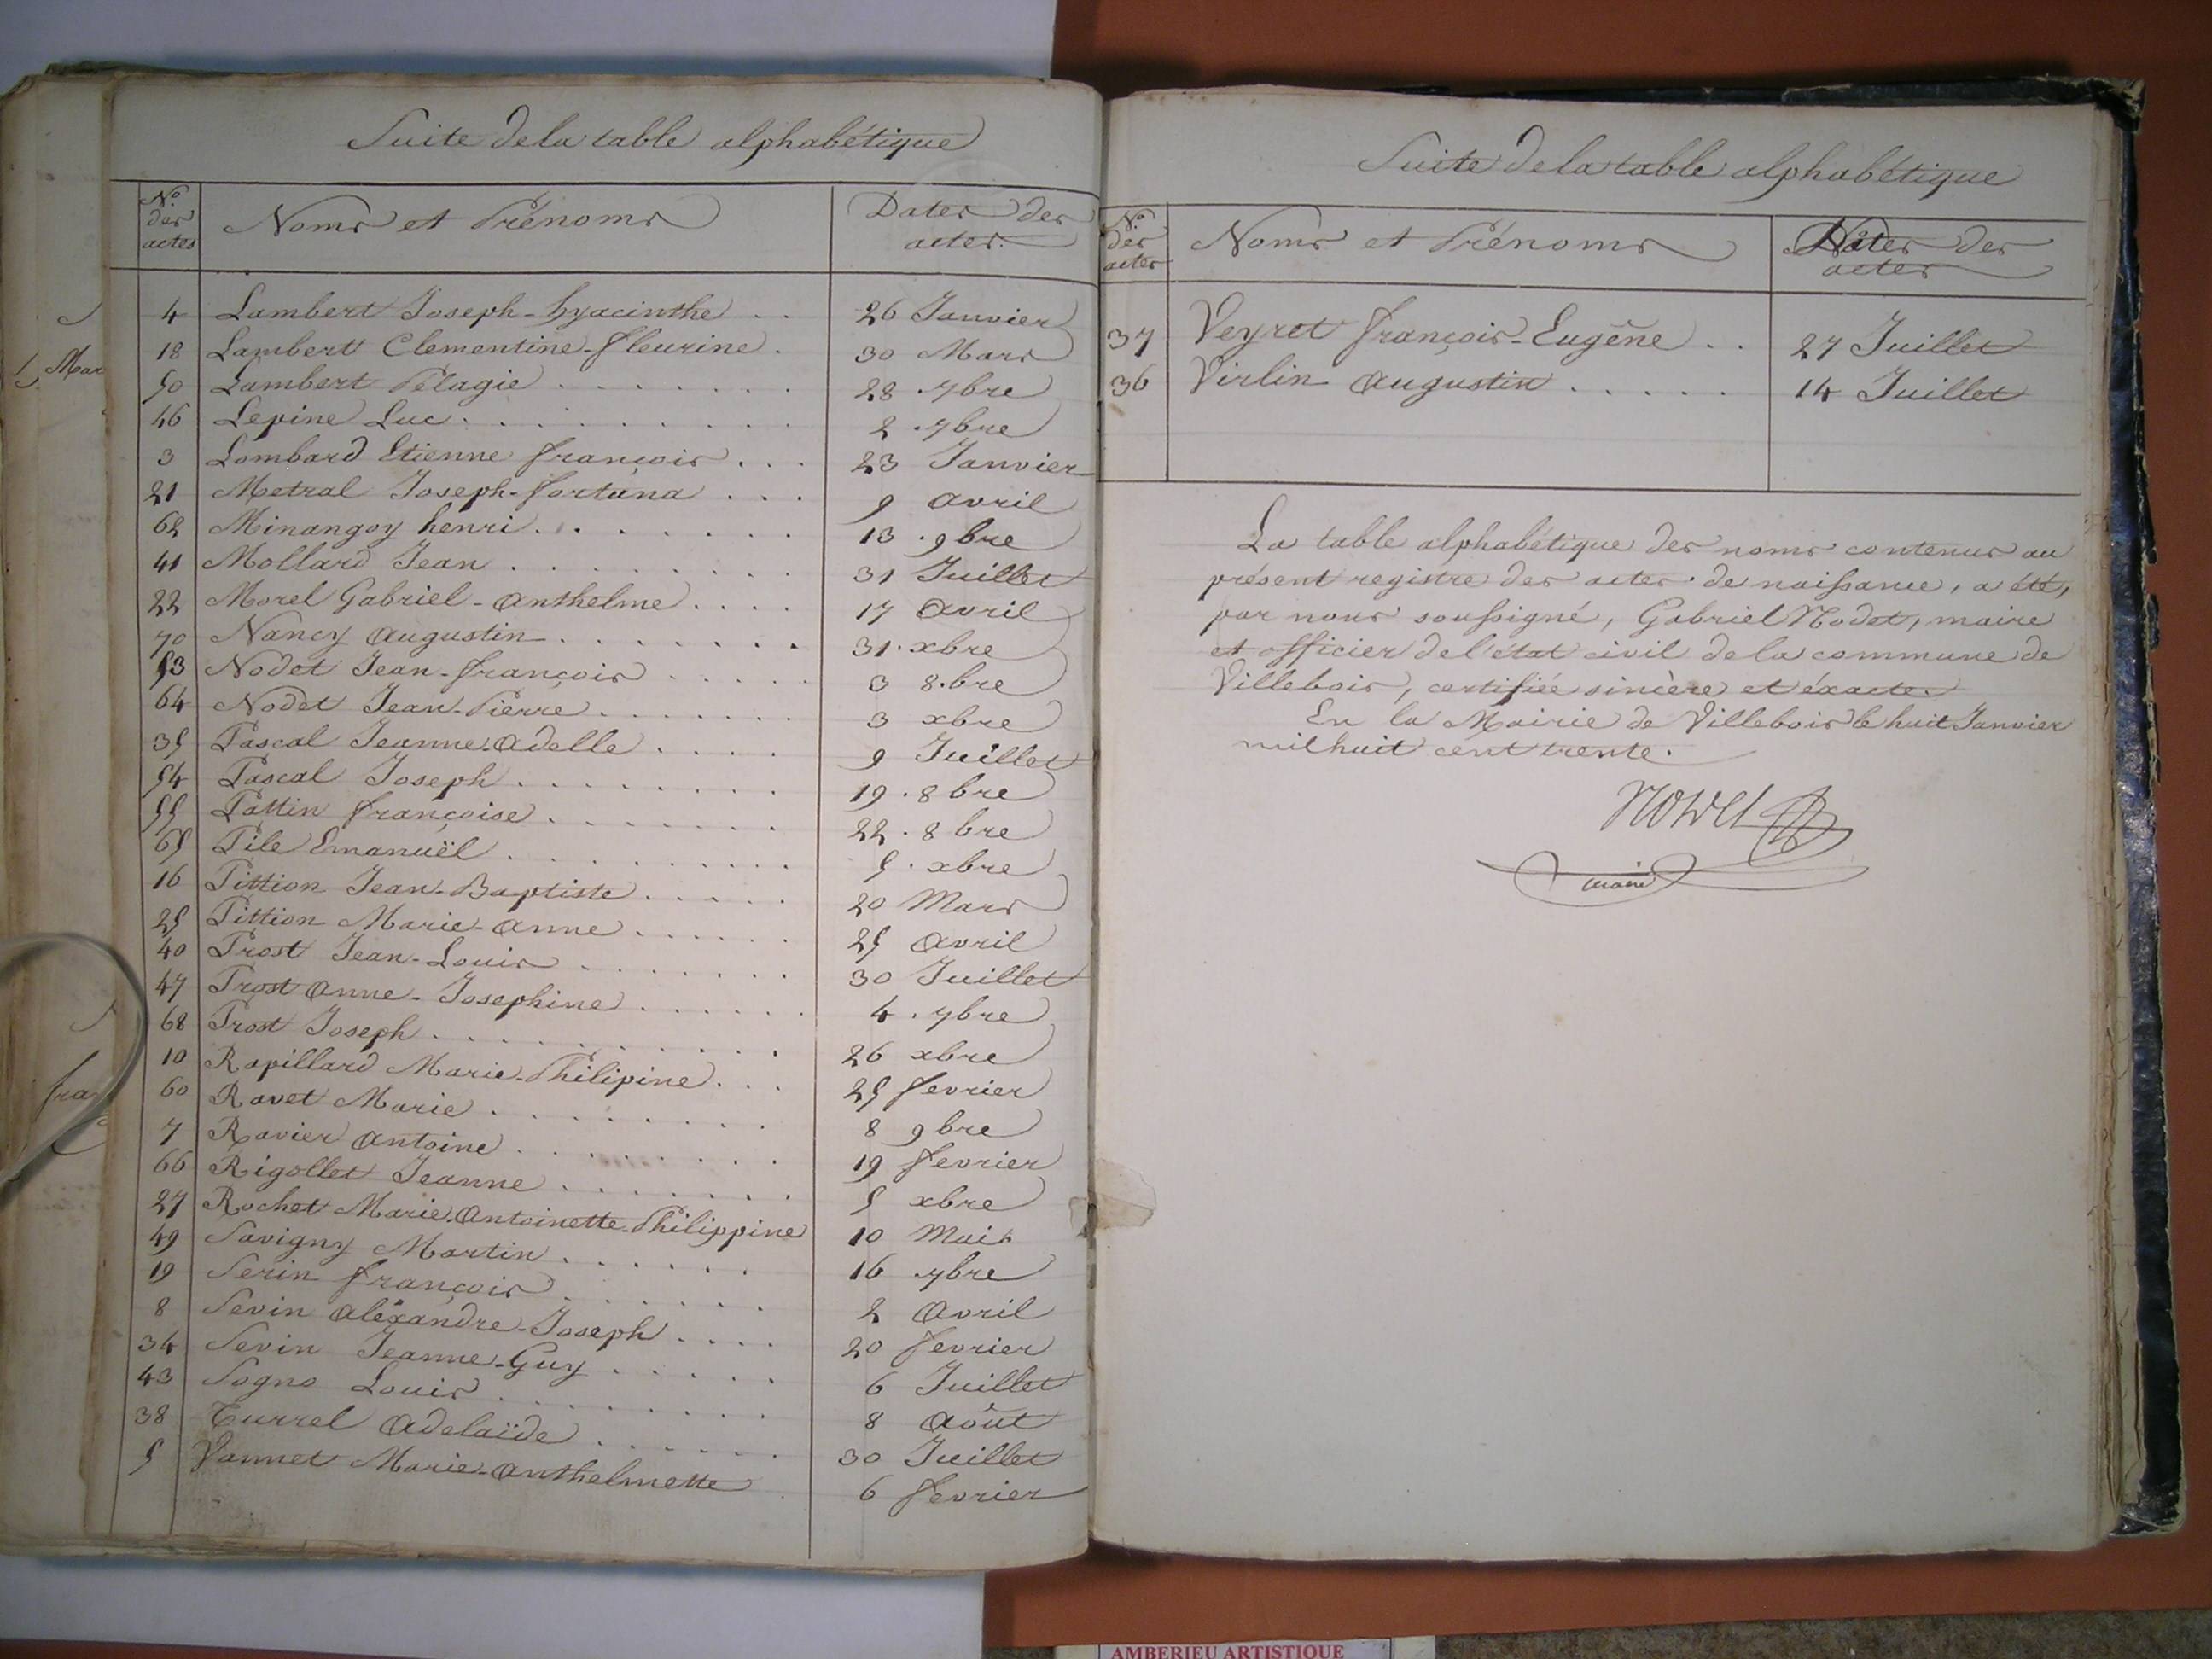 Suite de la table alphabétique
Nos des actes Noms et Prénoms Dates des actes.
4 Lambert Joseph-hyacinthe . . 26 Janvier
18 Lambert Clementine-fleurine . 30 Mars
50 Lambert Pélagie . . . . . . . 28 .7bre
46 Lepine Luc . . . . . . . . . 2 .7bre
3 Lombard Etienne françois . . . 23 Janvier
21 Metral Joseph-fortuna . . . 9 avril
62 Minangoy henri . . . . . . . 13 .9bre
41 Mollard Jean . . . . . . . . . 31 Juillet
22 Morel Gabriel-anthelme . . . . 17 avril
70 Nancy augustin . . . . . . . 31. xbre
53 Nodet Jean-françois . . . . . 3 8.bre
64 Nodet Jean-Pierre . . . . . . . 3 xbre
35 Pascal Jeanne-adelle . . . . 9 Juillet
54 Pascal Joseph . . . . . . . . 19 .8bre
55 Pattin françoise . . . . . . . 22 .8bre
65 Pile Emanuël . . . . . . . . . 5 . xbre
16 Pittion Jean-Baptiste . . . . . 20 Mars
25 Pittion Marie-anne . . . . . . 25 avril
40 Prost Jean-Louis . . . . . . . 30 Juillet
47 Prost anne-Josephine . . . . . . 4 .7bre
68 Prost Joseph . . . . . . . . . . 26 xbre
10 Rapillard Marie-Philipine . . . 25 fevrier
60 Ravet Marie . . . . . . . . . 8 9bre
7 Ravier antoine . . . . . . . . 19 fevrier
66 Rigollet Jeanne . . . . . . . 5 xbre
27 Rochet Marie-antoinette-Philippine 10 Mai
49 Savigny Martin . . . . . . 16 .7bre
19 Serin françois . . . . . . 2 avril
8 Sevin alexandre-Joseph . . . . 20 fevrier
34 Sevin Jeanne-Guy . . . . . 6 Juillet
43 Sogno Louis . . . . . . . . 8 août
38 Turrel adelaïde . . . . . . 30 Juillet
5 Vannet Marie-anthelmette 6 fevrier
Mar
fra
Suite de la table alphabétique
Nos des actes Noms et Prénoms Dates des actes
37 Veyret françois-Eugêne . . 27 Juillet
36 Virlin augustin . . . . . 14 Juillet
La table alphabétique des noms contenus au
présent registre des actes de naissance, a été,
par nous soussigné, Gabriel Nodet, maire
et officier de l'état civil de la commune de
Villebois, certifiée sincère et éxacte.
En la Mairie de Villebois le huit Janvier
mil huit cent trente.
NODET
maire
AMBERIEU ARTISTIQUE